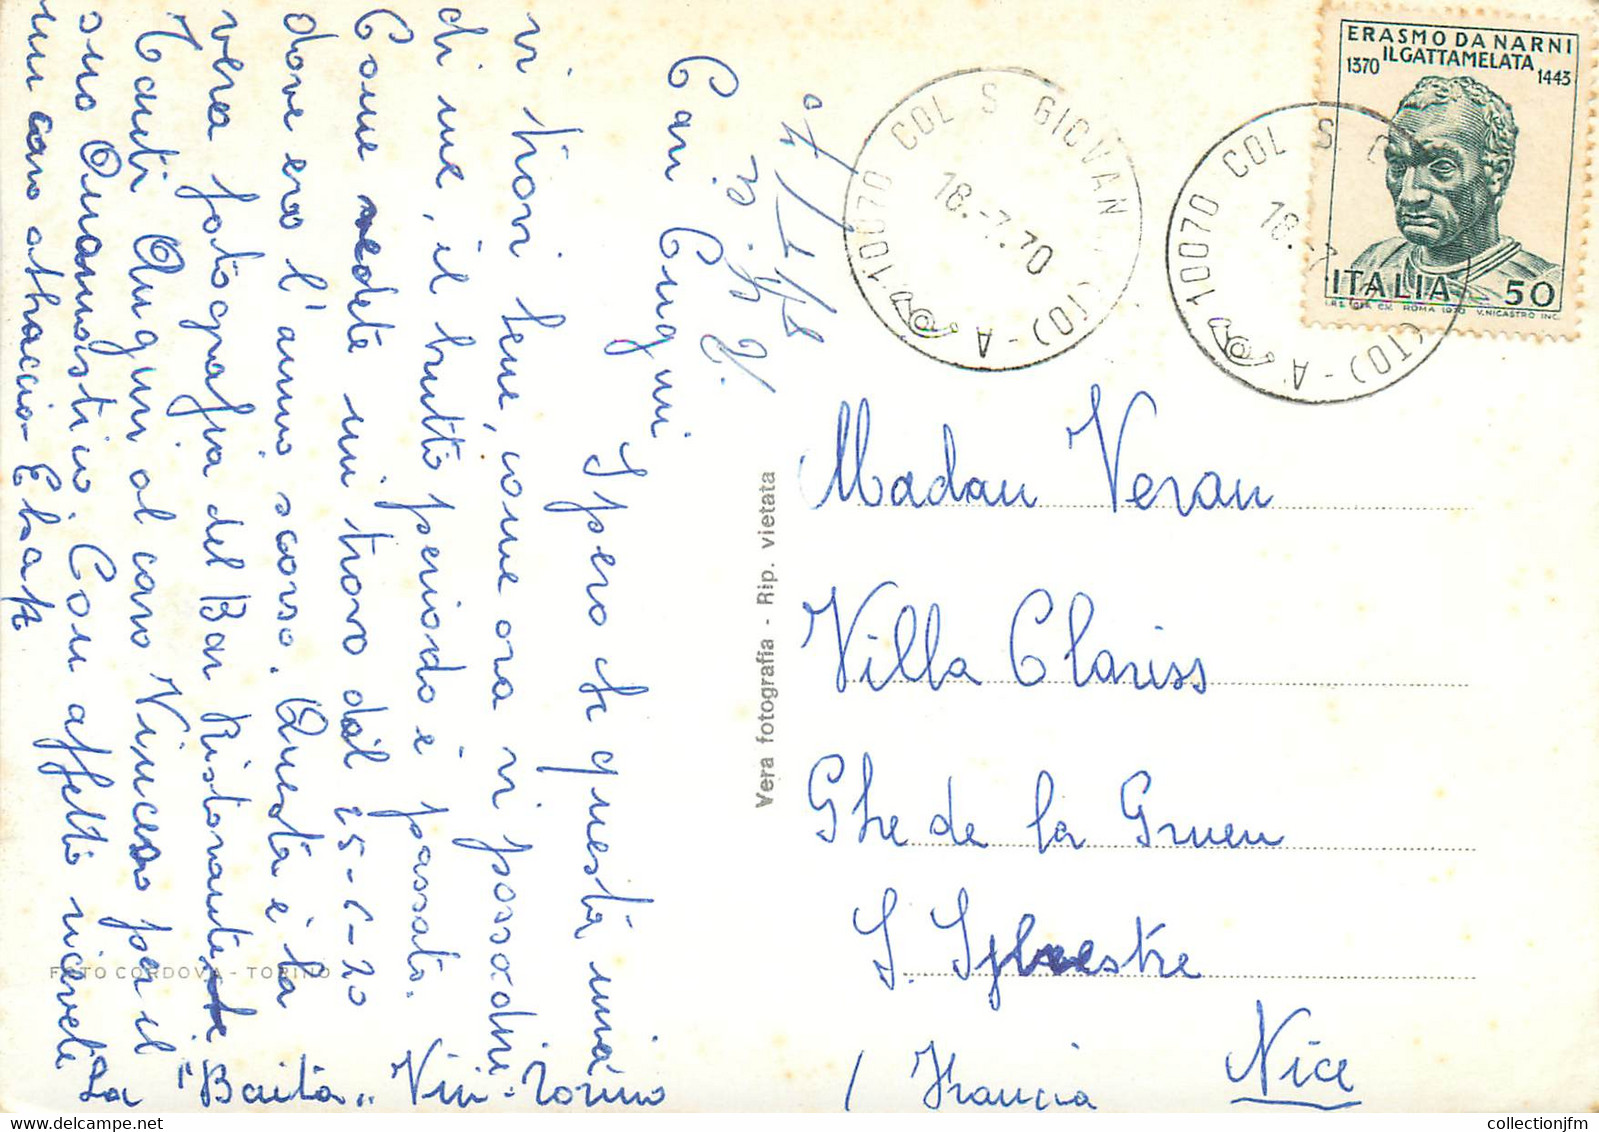 Cari Cugini
Spero che questa mia
vi trovi bene, come ora vi posso dire
di me, il brutto periodo è passato.
Come vedete mi trovo dal 25-6-70
dove ero l'anno scorso. Questa è la
vera fotografia del Bar Ristorante
Tanti Auguri al caro Vincenzo per il
suo Onomastico. Con affetto ricevete
un caro abbraccio - Elsa
La "Baita" Viù - Torino
FOTO CORDOVA - TORINO
Vera fotografia - Rip. vietata
10070 COL S GIOVAN (TO) - A
18.-7.70
10070 COL S G (TO) - A
18.-7
ERASMO DA NARNI
IL GATTAMELATA
1370 1443
ITALIA 50
I.P.S. OFF. CV. ROMA 1970 V.NICASTRO INC.
Madan Veran
Villa Clariss
Che de la Gruen
S. Sylvestre
Nice
(Francia
collectionjfm